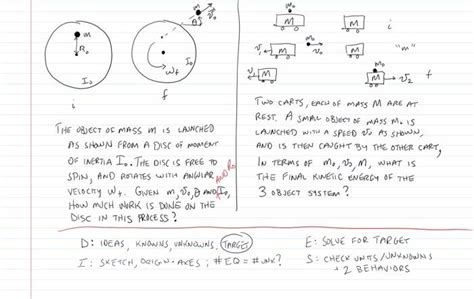 m
R₀
I₀
i
m
v₀
θ
I₀
ωf
f
THE OBJECT OF MASS m IS LAUNCHED
AS SHOWN FROM A DISC OF MOMENT
OF INERTIA I₀. THE DISC IS FREE TO
SPIN, AND ROTATES WITH ANGULAR
VELOCITY ωf. GIVEN m, v₀, θ AND I₀,
AND R₀
HOW MUCH WORK IS DONE ON THE
DISC IN THIS PROCESS?
m₀
M
M
i
v₁
M
m₀
v₀
M
"m"
v₁
M
m₀
M
v₂
f
TWO CARTS, EACH OF MASS M ARE AT
REST. A SMALL OBJECT OF MASS m₀ IS
LAUNCHED WITH A SPEED v₀ AS SHOWN,
AND IS THEN CAUGHT BY THE OTHER CART,
IN TERMS OF m₀, v₀, M, WHAT IS
THE FINAL KINETIC ENERGY OF THE
3 OBJECT SYSTEM?
D: IDEAS, KNOWNS, UNKNOWNS, TARGET
I: SKETCH, ORIGIN + AXES; #EQ = #UNK?
E: SOLVE FOR TARGET
S: CHECK UNITS/UNKNOWNS
+ 2 BEHAVIORS